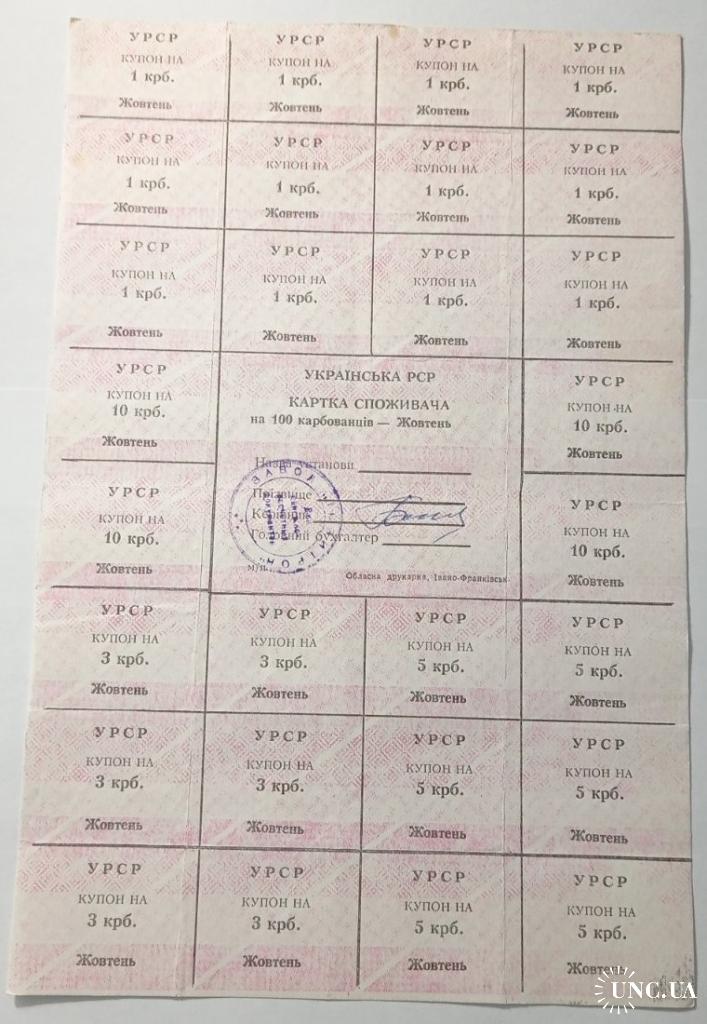 УРСР
КУПОН НА
1 крб.
Жовтень
УРСР
КУПОН НА
1 крб.
Жовтень
УРСР
КУПОН НА
1 крб.
Жовтень
УРСР
КУПОН НА
1 крб.
Жовтень
УРСР
КУПОН НА
1 крб.
Жовтень
УРСР
КУПОН НА
1 крб.
Жовтень
УРСР
КУПОН НА
1 крб.
Жовтень
УРСР
КУПОН НА
1 крб.
Жовтень
УРСР
КУПОН НА
1 крб.
Жовтень
УРСР
КУПОН НА
1 крб.
Жовтень
УРСР
КУПОН НА
1 крб.
Жовтень
УРСР
КУПОН НА
1 крб.
Жовтень
УРСР
КУПОН НА
10 крб.
Жовтень
УКРАЇНСЬКА РСР
КАРТКА СПОЖИВАЧА
на 100 карбованців — Жовтень
Назва установи
Прізвище
Керівник
Головний бухгалтер
м/п.
Обласна друкарня, Івано-Франківськ
ЗАВОД
УРСР
КУПОН НА
10 крб.
Жовтень
УРСР
КУПОН НА
10 крб.
Жовтень
УРСР
КУПОН НА
10 крб.
Жовтень
УРСР
КУПОН НА
3 крб.
Жовтень
УРСР
КУПОН НА
3 крб.
Жовтень
УРСР
КУПОН НА
5 крб.
Жовтень
УРСР
КУПОН НА
5 крб.
Жовтень
УРСР
КУПОН НА
3 крб.
Жовтень
УРСР
КУПОН НА
3 крб.
Жовтень
УРСР
КУПОН НА
5 крб.
Жовтень
УРСР
КУПОН НА
5 крб.
Жовтень
УРСР
КУПОН НА
3 крб.
Жовтень
УРСР
КУПОН НА
3 крб.
Жовтень
УРСР
КУПОН НА
5 крб.
Жовтень
УРСР
КУПОН НА
5 крб.
Жовтень
UNC.UA